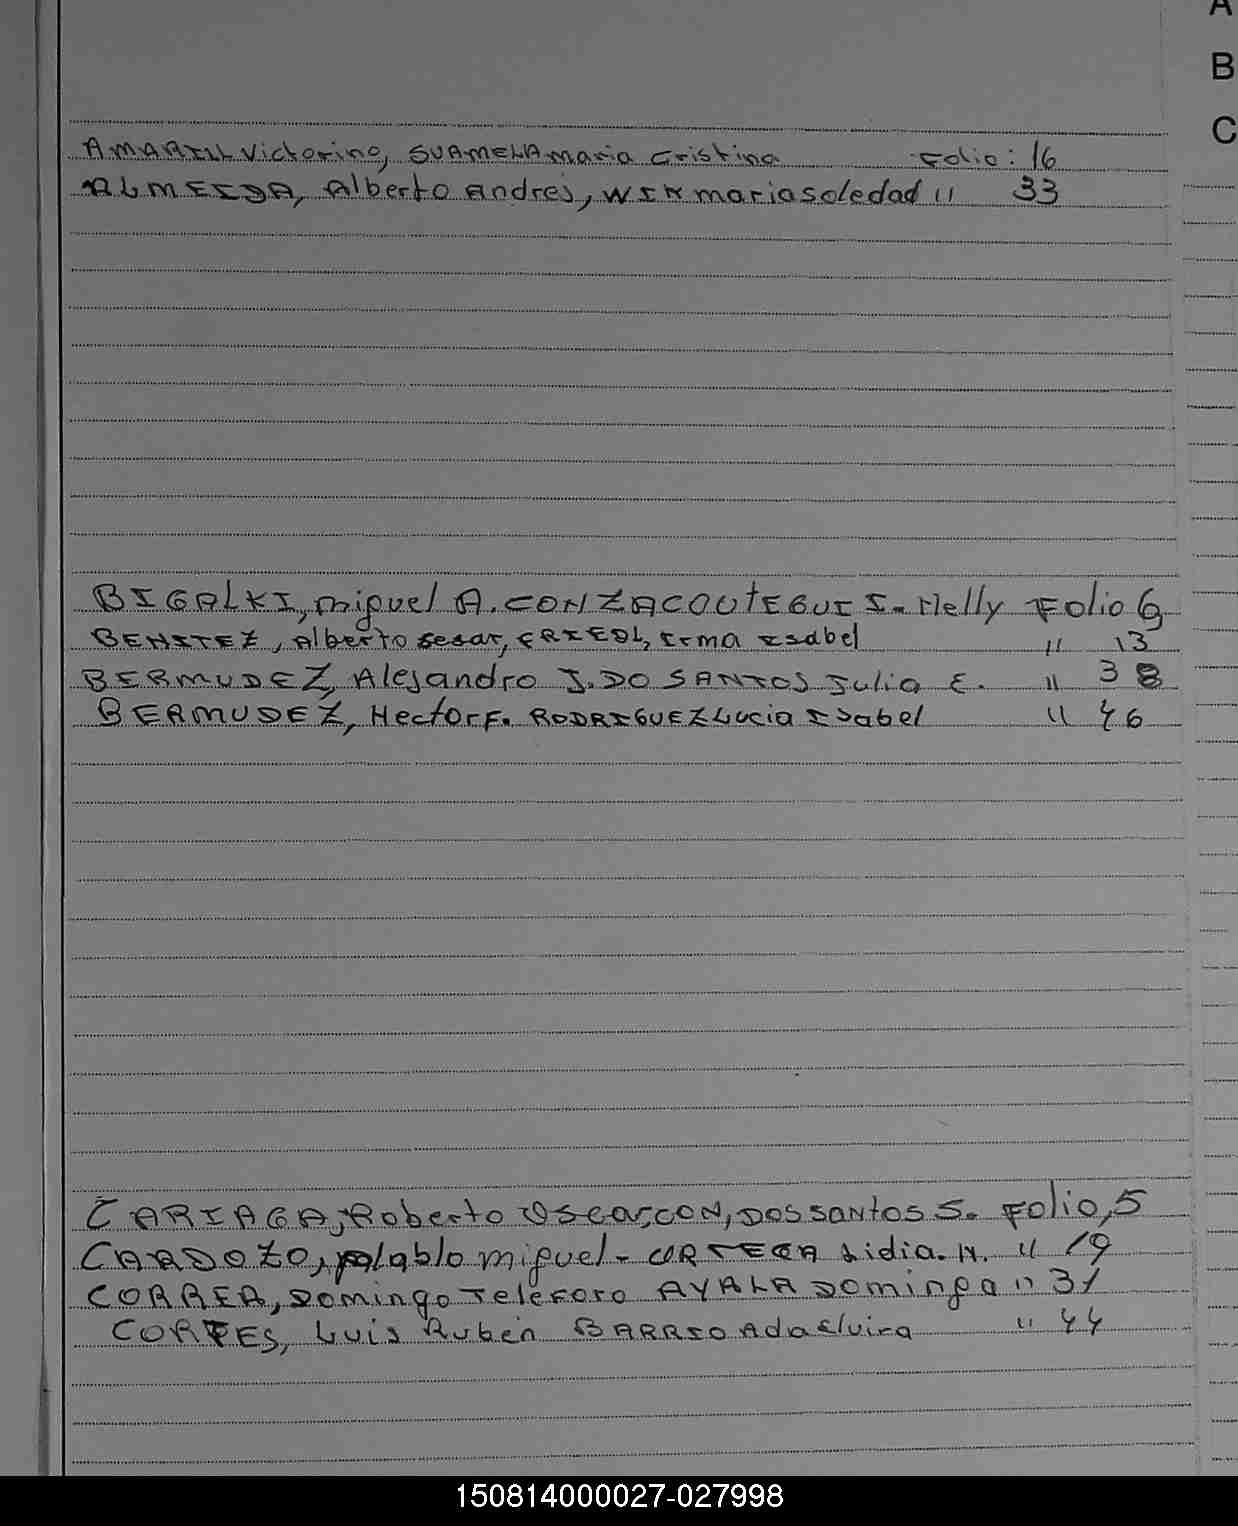 A
B
C
AMARILL Victorino, SUAMELA Maria Cristina Folio: 16
ALMEIDA, Alberto Andres, WIN maria soledad 11 33
BIGALKI, Miguel A. CON ZACOUTEGUI I. Nelly Folio 6
BENITEZ, Alberto sesar, FRIEDL, Irma Isabel 11 13
BERMUDEZ, Alejandro J. DO SANTOS Julia E. 11 38
BERMUDEZ, Hector F. RODRIGUEZ Lucia Isabel 11 46
CARIAGA, Roberto Oscar, CON, DOS SANTOS S. Folio, 5
CARDOZO, Pablo Miguel - URTECA Lidia. N. 11 19
CORREA, Domingo Telesforo AYALA Dominga 11 31
CORTES, Luis Ruben BARRIO Ada Elvira 11 44
150814000027-027998